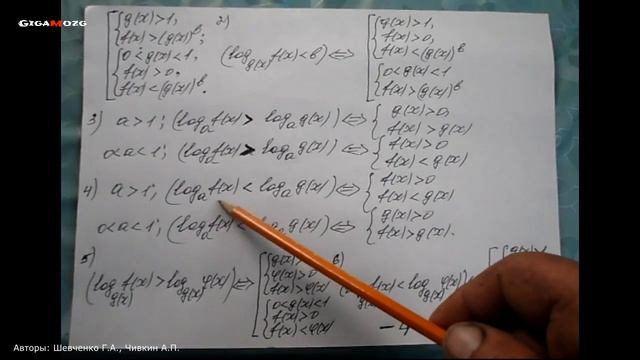 GIGAMOZG
g(x)>1,
f(x)>(g(x))^b;
0<g(x)<1,
f(x)>0,
f(x)<(g(x))^b.
2) (log_g(x) f(x)<b) ⇔
g(x)>1,
f(x)>0,
f(x)<(g(x))^b
0<g(x)<1
f(x)>(g(x))^b
3) a>1; (log_a f(x) > log_a g(x)) ⇔ { g(x)>0, f(x)>g(x)
0<a<1; (log_a f(x) > log_a g(x)) ⇔ { f(x)>0 f(x)<g(x)
4) a>1; (log_a f(x) < log_a g(x)) ⇔ { f(x)>0 f(x)<g(x)
0<a<1; (log_a f(x) < log_a g(x)) ⇔ { g(x)>0 f(x)>g(x).
5) (log_g(x) f(x) > log_g(x) φ(x)) ⇔
g(x)>
φ(x)>0
f(x)>φ(x)
0<g(x)<1
f(x)>0
f(x)<φ(x)
f(x)<log_g(x)
Авторы: Шевченко Г.А., Чивкин А.П.